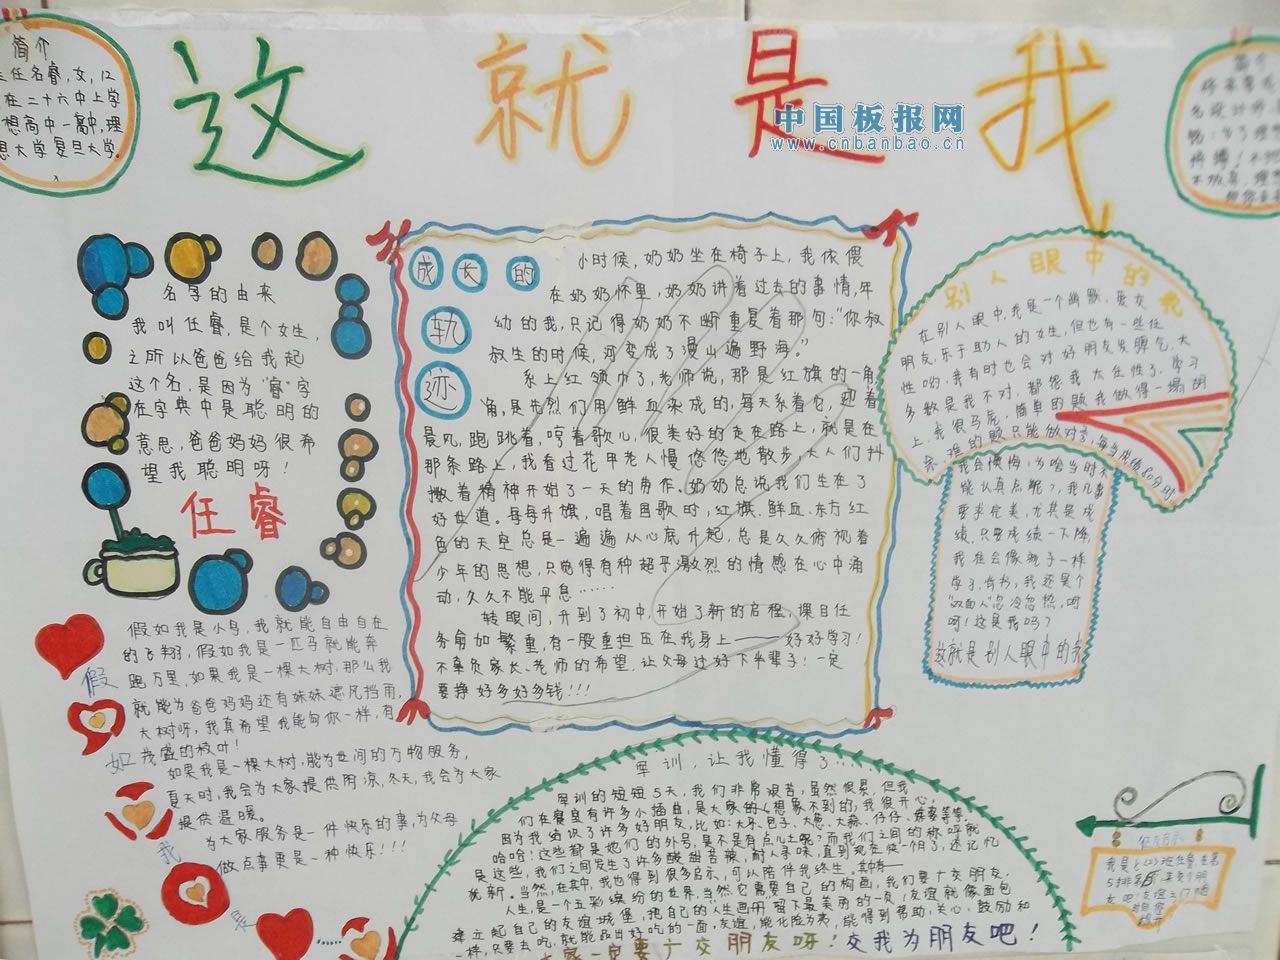 这就是我
中国板报网
www.cnbanbao.cn
简介
任名睿,女,12
在二十六中上学
想高中一高中,理
想大学复旦大学。
名字的由来
我叫任睿,是个女生,
之所以爸爸给我起
这个名,是因为“睿”字
在字典中是聪明的
意思,爸爸妈妈很希
望我聪明呀!
任睿
成长的
轨
迹
小时候,奶奶坐在椅子上,我依偎
在奶奶怀里,奶奶讲着过去的事情,年
幼的我,只记得奶奶不断重复着那句:“你叔
叔生的时候,河变成了漫山遍野海。”
系上红领巾了,老师说,那是红旗的一角
角,是先烈们用鲜血染成的,每天系着它,迎着
晨风,跑跳着,哼着歌儿,很美好的走在路上,就是在
那条路上,我看过花甲老人慢悠悠地散步,大人们抖
擞着精神开始了一天的劳作。奶奶总说我们生在了
好世道。每每升旗,唱着国歌时,红旗、鲜血、东方红
色的天空总是一遍遍从心底升起,总是久久俯视着
少年的思想,只觉得有种超乎激烈的情感在心中涌
动,久久不能平息……
转眼间,升到了初中,开始了新的启程,课目任
务愈加繁重,有一股重担压在我身上——好好学习!
不辜负家长、老师的希望,让父母过好下半辈子!一定
要挣好多好多钱!!!
别人眼中的我
在别人眼中,我是一个幽默、爱交
朋友、乐于助人的女生,但也有一些任
性哟,我有时也会对好朋友发脾气,大
多数是我不对,都怨我太任性了,学习
上,我很马虎,简单的题我做得一塌
我会懊悔,为啥当时不
能认真点呢?,我凡事
要求完美,尤其是成
绩,只要成绩一下降,
学习,肯为,我还是个
“双面人”忽冷忽热,呵
呵!这是我吗?
这就是别人眼中的我
假如我是小鸟,我就能自由自在
的飞翔,假如我是一匹马就能奔
跑万里,如果我是一棵大树,那么我
就能为爸爸妈妈还有妹妹遮风挡雨,
大树呀,我真希望我能向你一样,有
茂盛的枝叶!
如果我是一棵大树,能为世间的万物服务,
夏天时,我会为大家提供阴凉,冬天,我会为大家
提供温暖。
为大家服务是一件快乐的事,为父母
做点事更是一种快乐!!!
假
如
我
是
军训,让我懂得了……
军训的短短5天,我们非常艰苦,虽然很累,但我
们在寝室有许多小插曲,是大家的想象不到的,我很开心,
因为我结识了许多好朋友,比如:大牙、包子、大葱、大蒜、仔仔、
哈哈!这些都是她们的外号,是不是有点儿土呢?而我们之间的称呼就
是这些,我们之间发生了许多酸甜苦辣,耐人寻味,直到现在快一个月了,还记忆
犹新。当然,在其中,我也得到很多启示,可以陪伴我终生。其中有——
人生,是一个五彩缤纷的世界,当然它需要自己的构画,我们要广交朋友,
建立起自己的友谊城堡,把自己的人生画册留下最美劳的一页!友谊就像面包
一样,只要去吃,就能品出好吃的一面,友谊,能化险为夷,能得到帮助,关心、鼓励和
大家一定要广交朋友呀!交我为朋友吧!